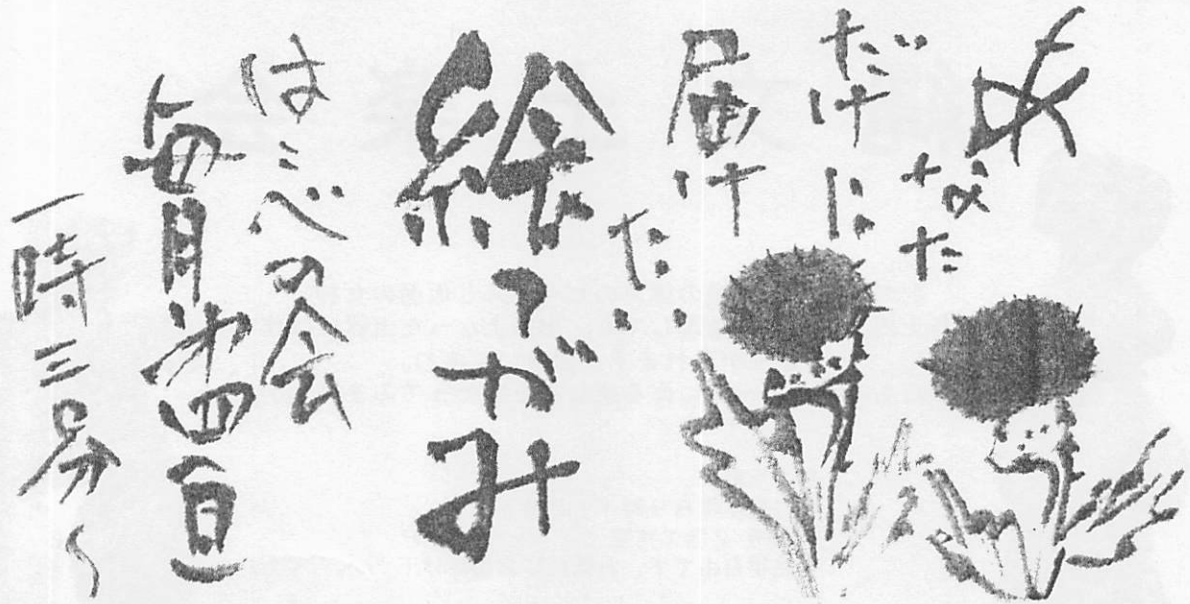 あなた
だけに
届け
たい
絵てがみ
はこべの会
毎月第四
一時三十分〜